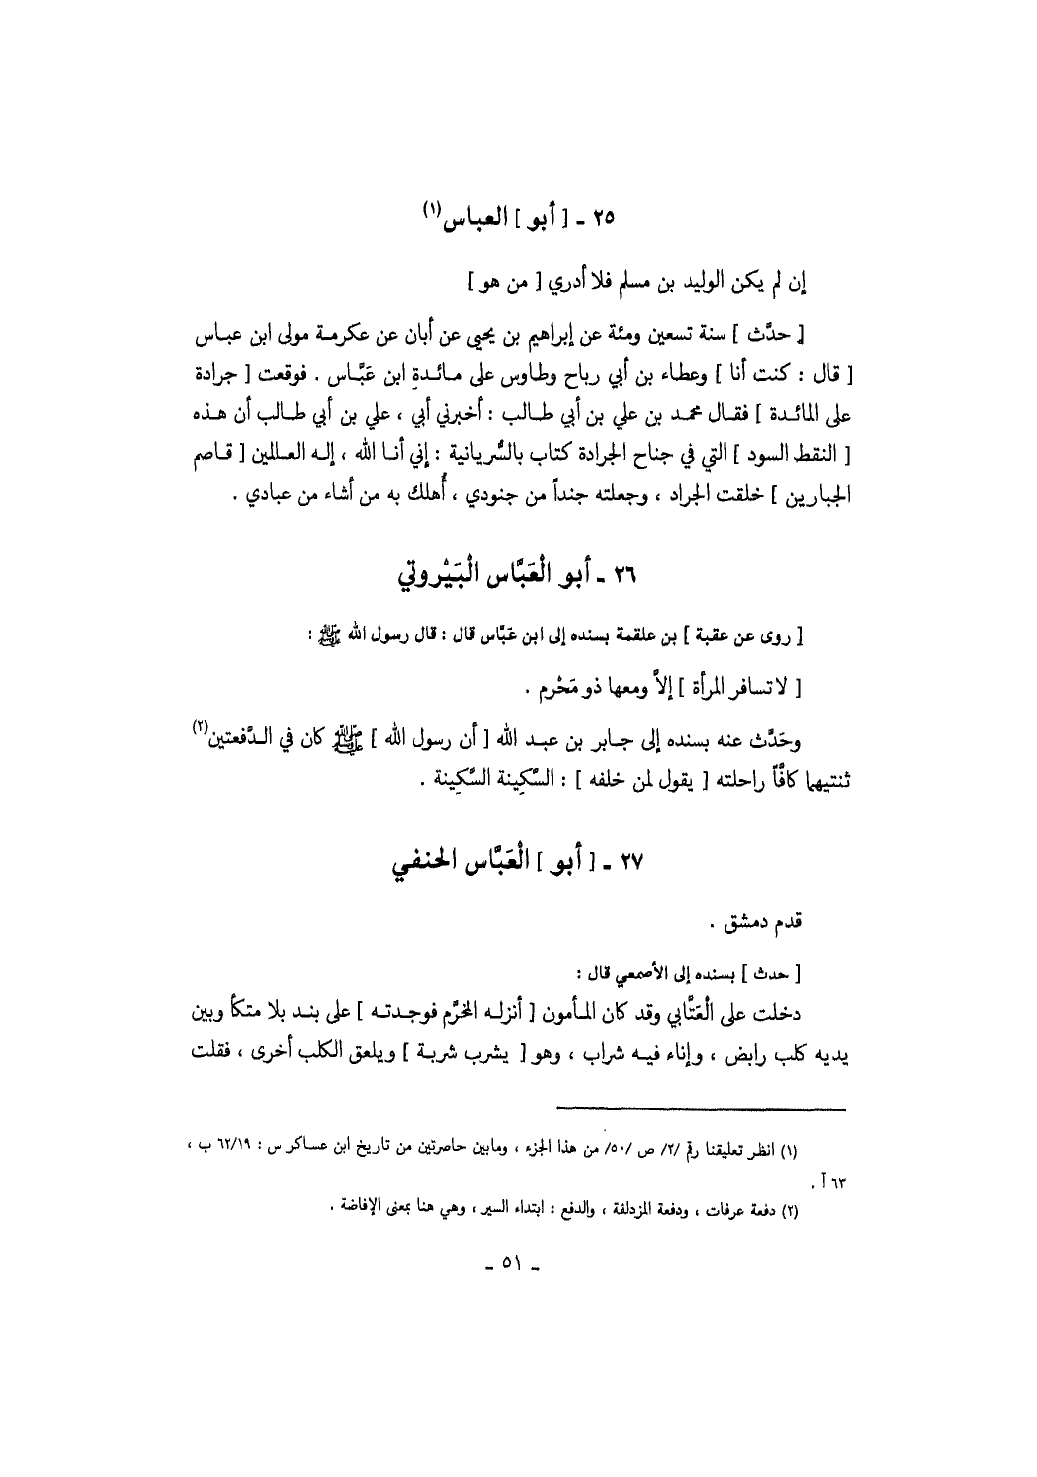 ٢٥ ـ [ أبو ] العباس(١)
إن لم يكن الوليد بن مسلم فلا أدري [ من هو ]
[ حدَّث ] سنة تسعين ومئة عن إبراهيم بن يحيى عن أبان عن عكرمة مولى ابن عباس
[ قال : كنت أنا ] وعطاء بن أبي رباح وطاوس على مائدةِ ابن عَبَّاس . فوقعت [ جرادة
على المائدة ] فقال محمد بن علي بن أبي طالب : أخبرني أبي ، علي بن أبي طالب أن هذه
[ النقط السود ] التي في جناح الجرادة كتاب بالسُّريانية : إني أنا الله ، إله العالمين [ قاصم
الجبارين ] خلقت الجراد ، وجعلته جنداً من جنودي ، أُهلك به من أشاء من عبادي .
٢٦ ـ أبو الْعَبَّاس الْبَيْروتي
[ روى عن عقبة ] بن علقمة بسنده إلى ابن عبَّاس قال : قال رسول الله ﷺ :
[ لا تسافر المرأة ] إلاَّ ومعها ذو مَحْرم .
وحَدَّث عنه بسنده إلى جابر بن عبد الله [ أن رسول الله ] ﷺ كان في الدَّفعتين(٢)
ثنتيهما كافَّاً راحلته [ يقول لمن خلفه ] : السَّكِينة السَّكِينة .
٢٧ ـ [ أبو ] الْعَبَّاس الحنفي
قدم دمشق .
[ حدث ] بسنده إلى الأصمعي قال :
دخلت على الْعَتَّابي وقد كان المأمون [ أنزله المخرَّم فوجدته ] على بند بلا متكأ وبين
يديه كلب رابض ، وإناء فيه شراب ، وهو [ يشرب شربة ] ويلعق الكلب أخرى ، فقلت
(١) انظر تعليقنا رقم /٢/ ص /٥٠/ من هذا الجزء ، ومابين حاصرتين من تاريخ ابن عساكر س : ٦٢/١٩ ب ،
٦٣ آ .
(٢) دفعة عرفات ، ودفعة المزدلفة ، والدفع : ابتداء السير ، وهي هنا بمعنى الإفاضة .
ـ ٥١ ـ